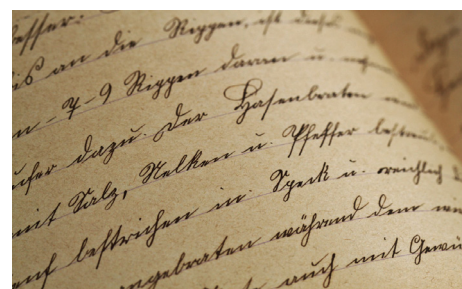 besser:
bis an die Rippen, ist dies
n - 7-9 Rippen daran u.
dazu. Der Hasenbraten
mit Salz, Nelken u. Pfeffer bestreut
Senf bestrichen in Speck u. reichlich
angebraten während dem
auch mit Gewü